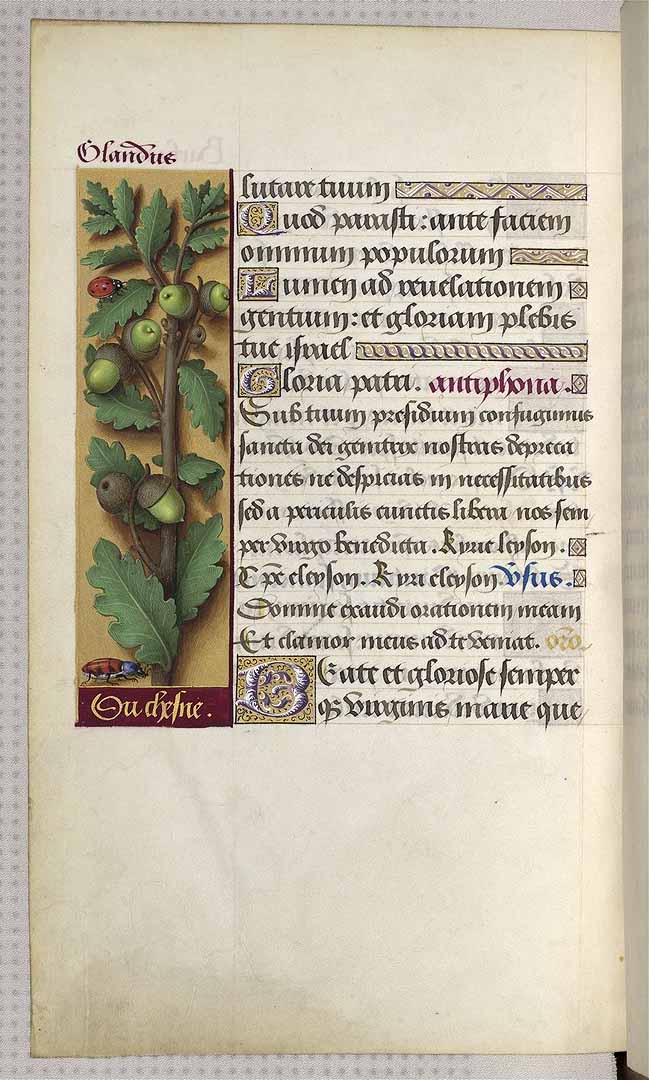 Glandus
lutare tuum
Quod parasti: ante faciem
omnium populorum
Lumen ad reuelationem
gentium: et gloriam plebis
tue israel
Gloria patri. antiphona.
Sub tuum presidium confugimus
sancta dei genitrix nostras depreca
tiones ne despicias in necessitatibus
sed a periculis cunctis libera nos sem
per virgo benedicta. Kyrie leyson.
Xpe eleyson. Kyri eleyson. Vsus.
Domine exaudi orationem meam
Et clamor meus ad te veniat. oro
Beate et gloriose semper
qz virginis marie que
Du chesne.